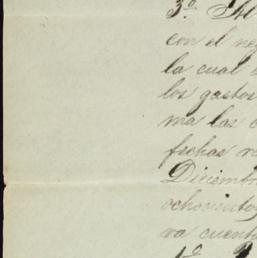 3º
con el
la cual
los gastos
ma las
fechas
Diciembr
ochocientos
ra cuent